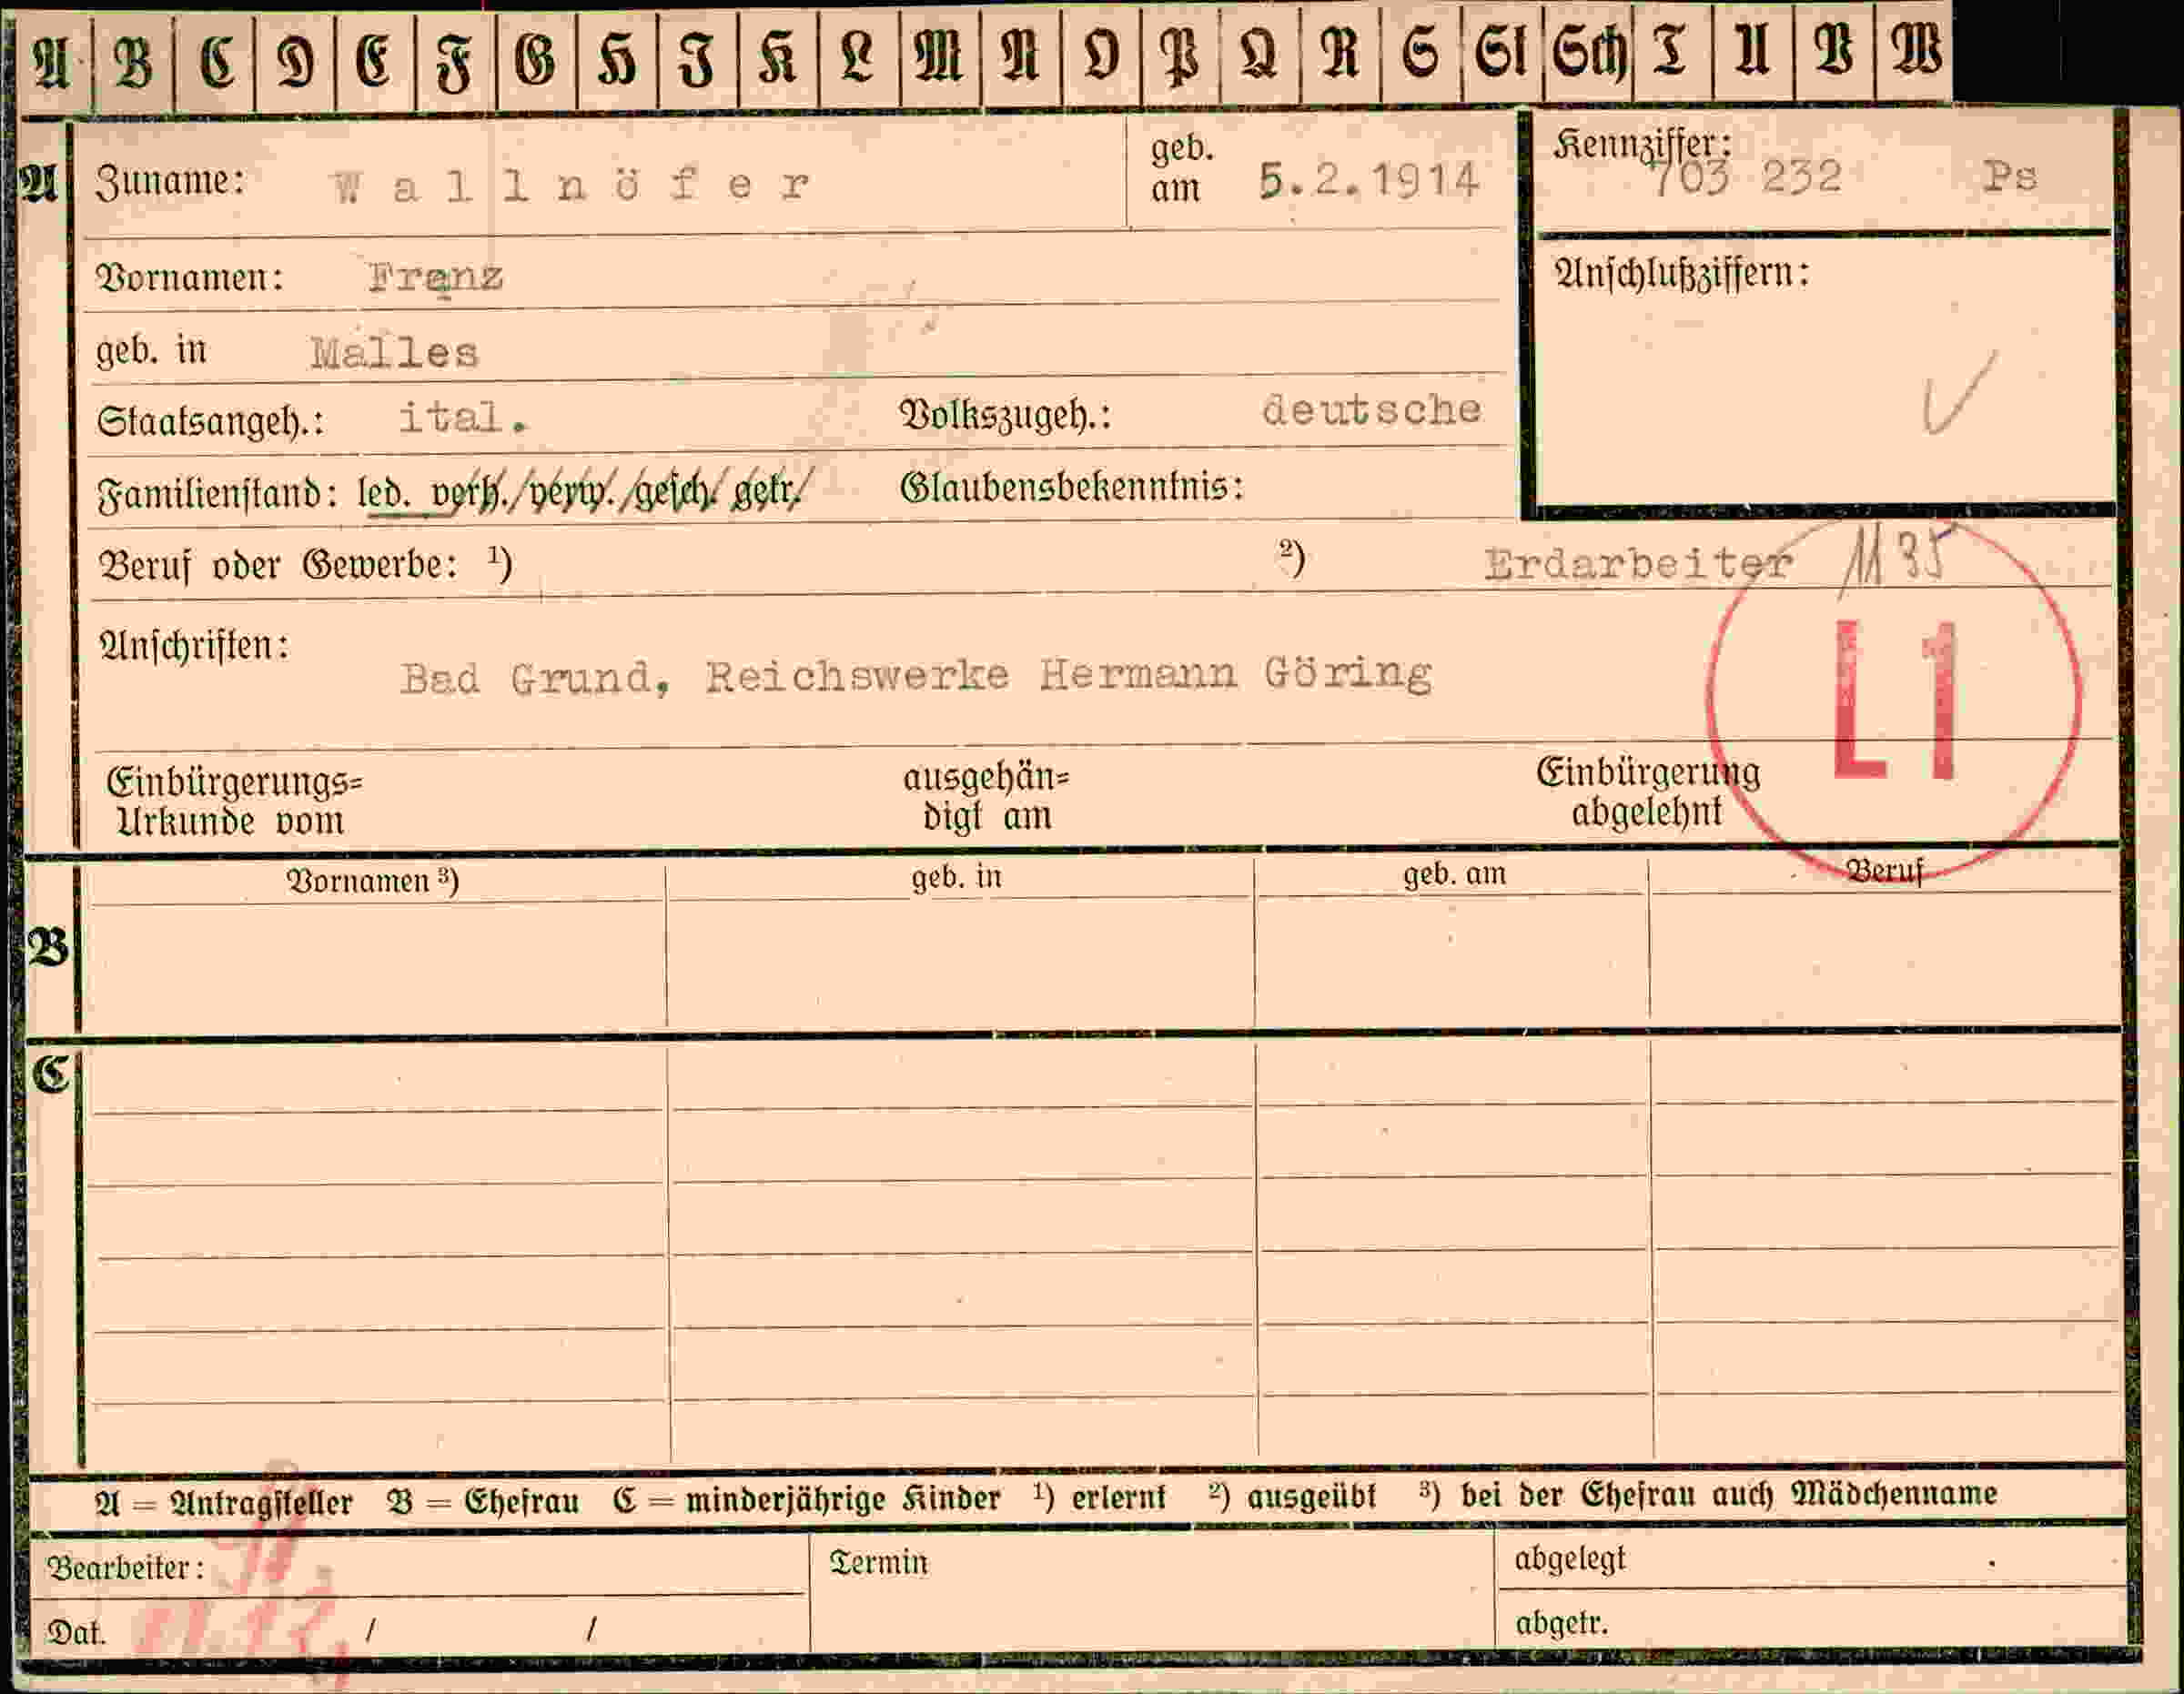 A B C D E F G H I K L M N O P Q R S St Sch T U V W
A Zuname: Wallnöfer geb. am 5.2.1914 Kennziffer: 703 232 Ps
Vornamen: Franz Anschlußziffern:
geb. in Malles
Staatsangeh.: ital. Volkszugeh.: deutsche
Familienstand: led. verh./verw./gesch./getr./ Glaubensbekenntnis:
Beruf oder Gewerbe: 1) 2) Erdarbeiter 1135
Anschriften:
Bad Grund, Reichswerke Hermann Göring
L1
Einbürgerungs= ausgehän= Einbürgerung
Urkunde vom digt am abgelehnt
Vornamen 3) geb. in geb. am Beruf
B
C
A = Antragsteller B = Ehefrau C = minderjährige Kinder 1) erlernt 2) ausgeübt 3) bei der Ehefrau auch Mädchenname
Bearbeiter: Termin abgelegt
Dat. / / abgetr.